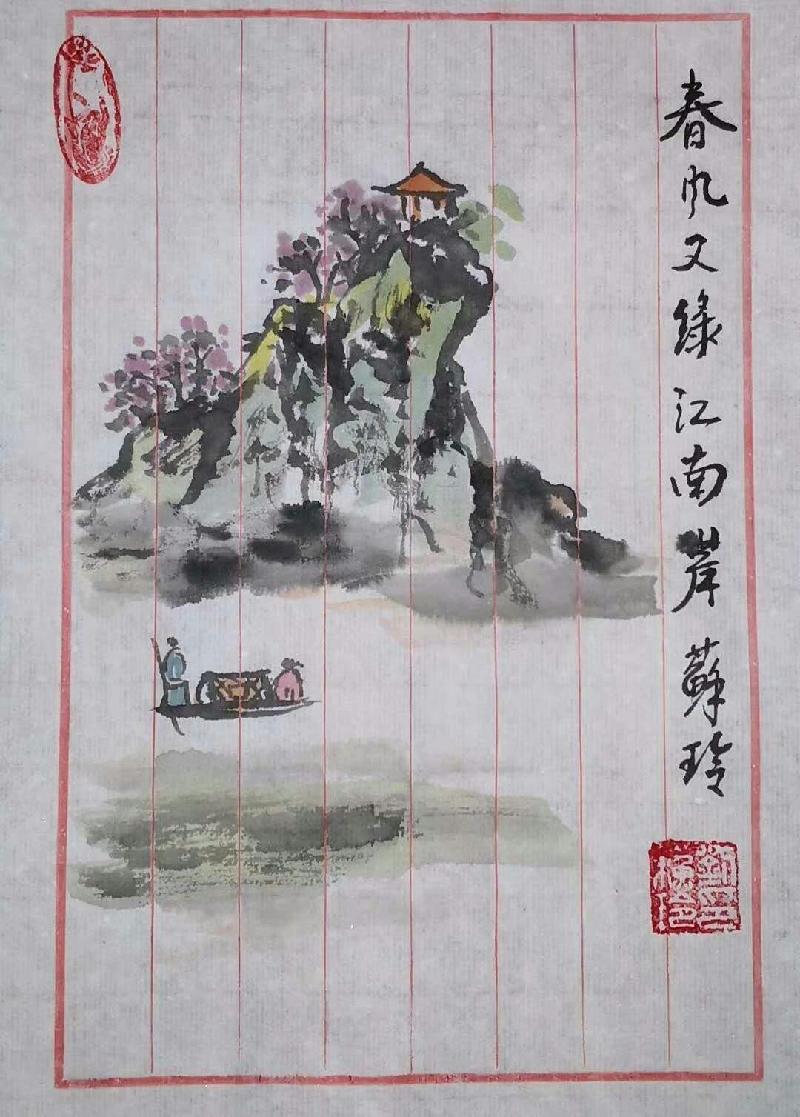 春风又綠江南岸 蘇玲